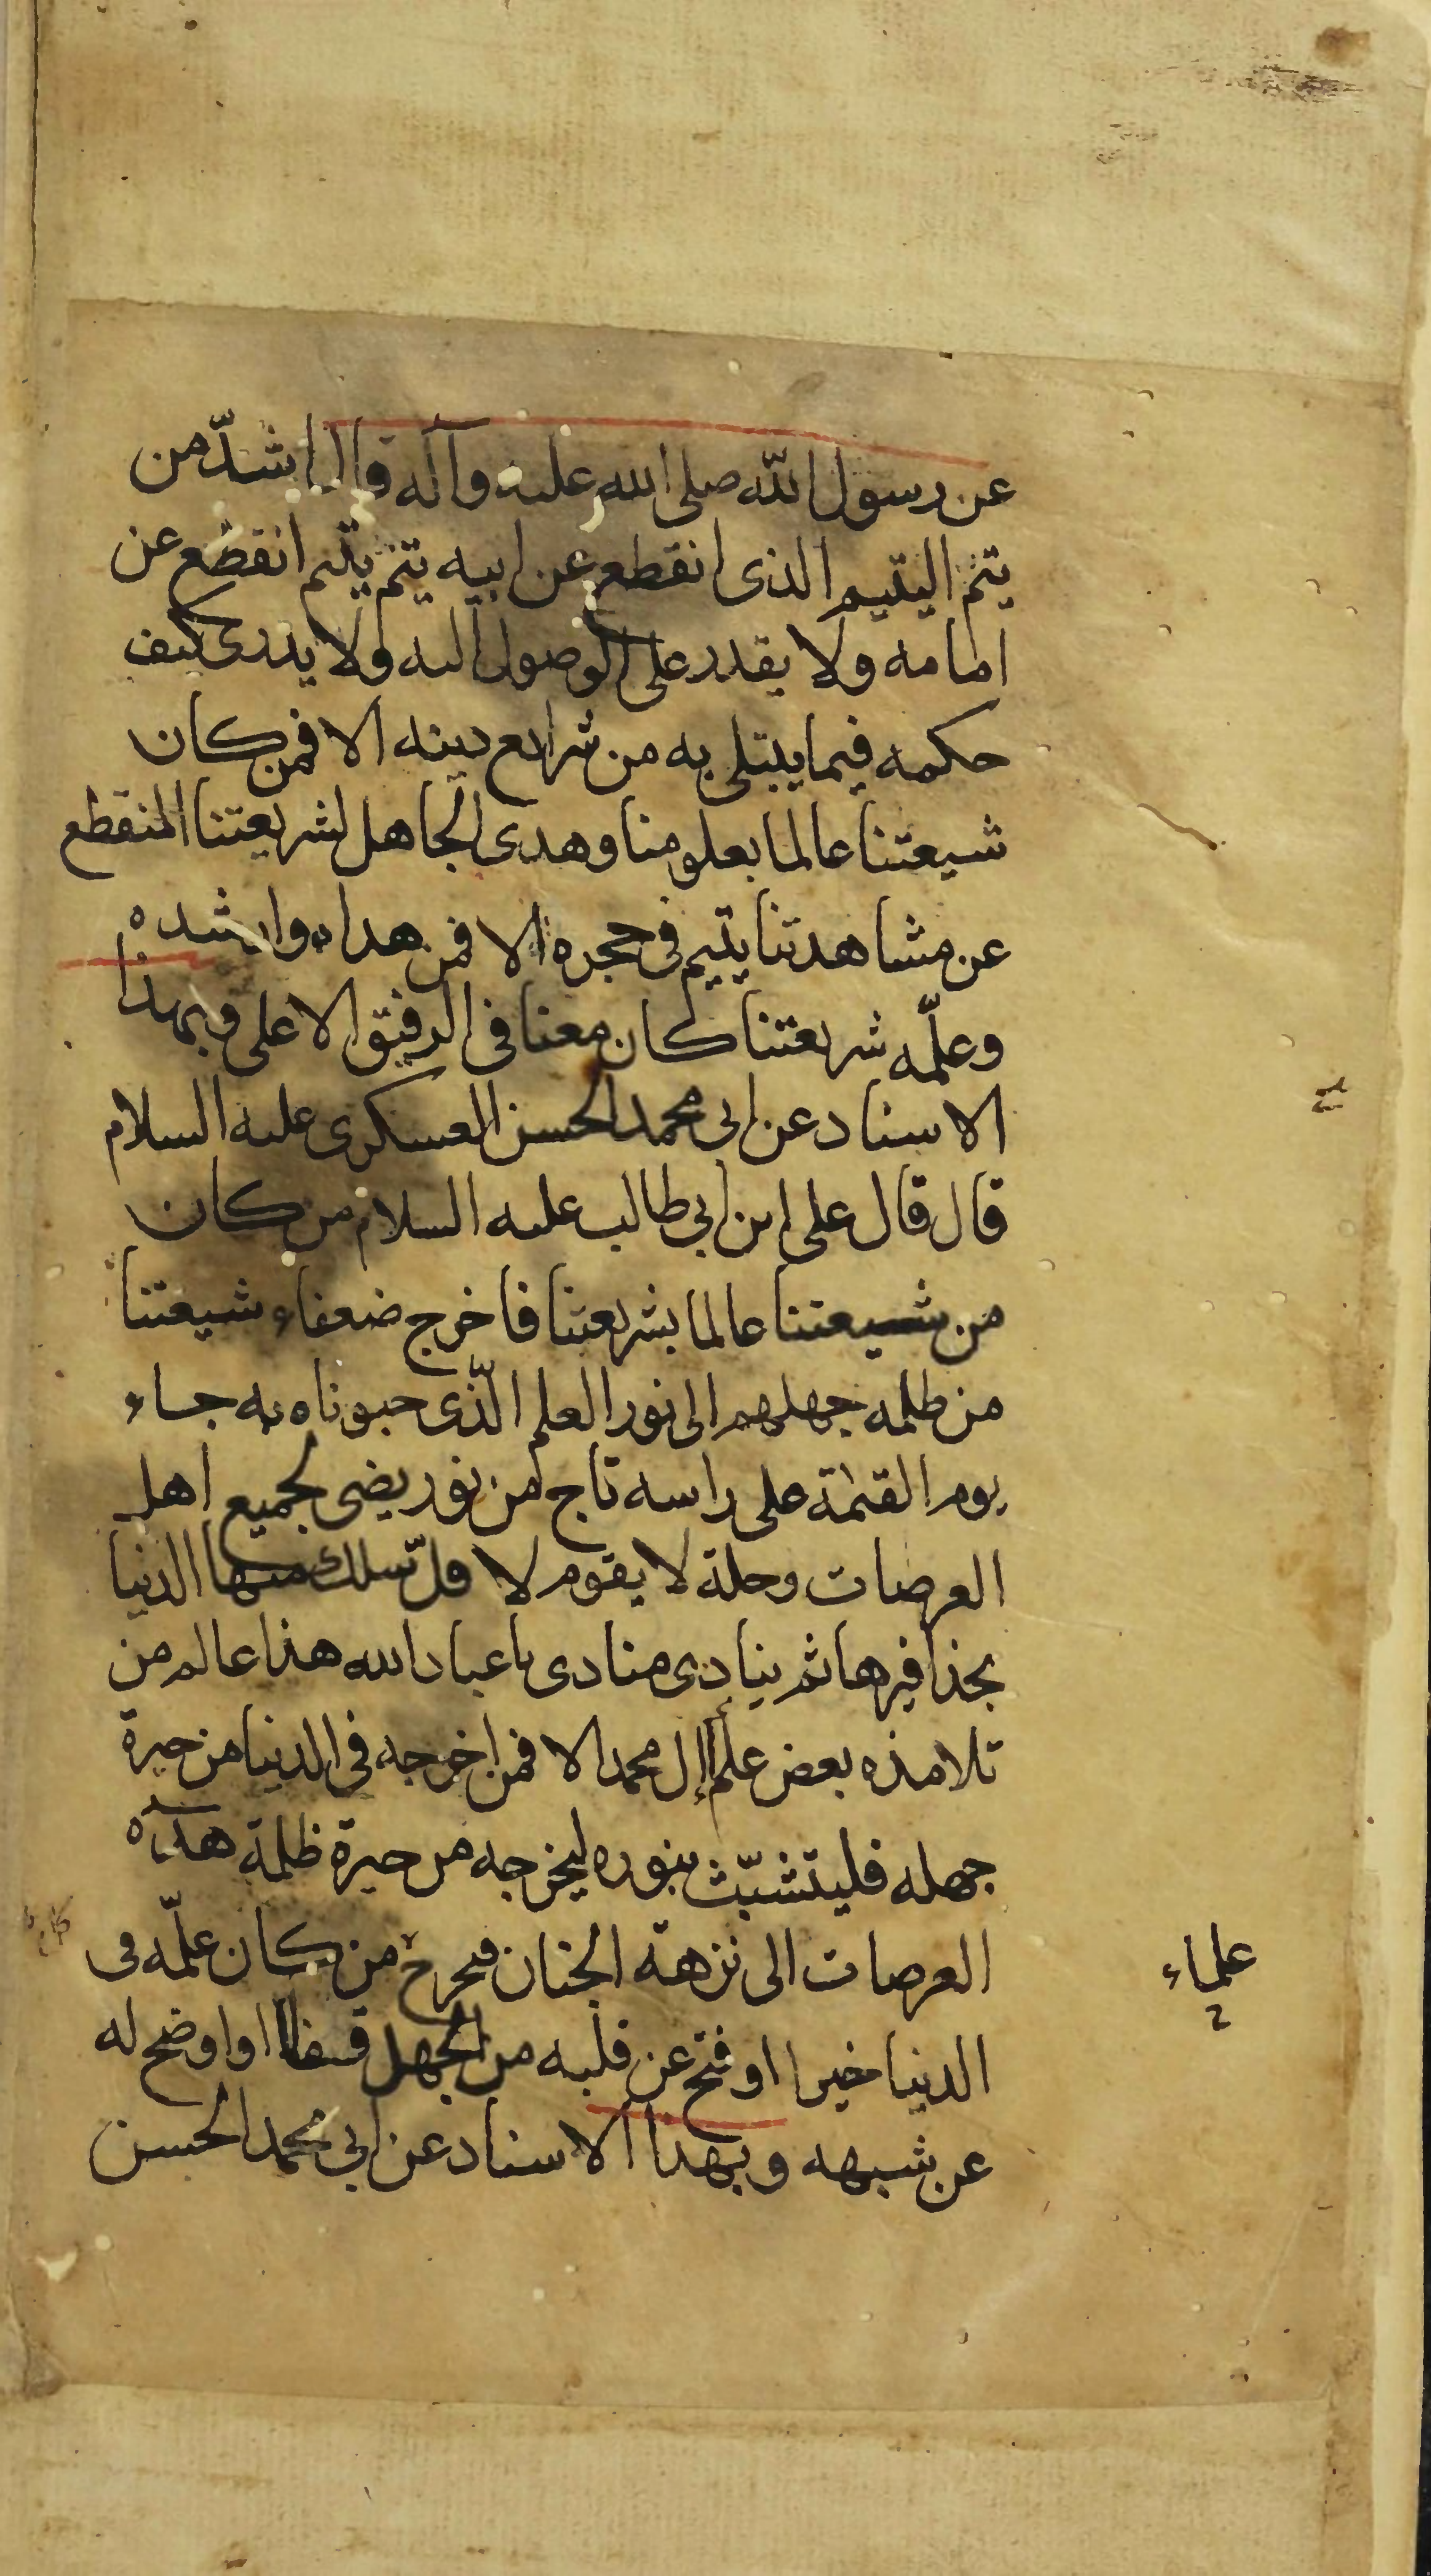 عن رسول الله صلى الله عليه وآله قال اشدّ من
يتم اليتيم الذى انقطع عن ابيه يتم يتيم انقطع عن
امامه ولا يقدر على الوصول اليه ولا يدرى كيف
حكمه فيما يبتلى به من شرايع دينه الا فمن كان
شيعتنا عالما بعلومنا وهدى الجاهل لشريعتنا المنقطع
عن مشاهدتنا يتيم فى حجره الا فمن هداه وارشده
وعلّمه شريعتنا كان معنا فى الرفيق الاعلى وبهذا
الاسناد عن ابى محمد الحسن العسكرى عليه السلام
قال قال على ابن ابي طالب عليه السلام من كان
من شيعتنا عالما بشريعتنا فاخرج ضعفاء شيعتنا
من ظلمه جهلهم الى نور العلم الّذى حبوناه به جاء
يوم القيمة على راسه تاج من نور يضى لجميع اهل
العرصات وحلة لا يقوم لا قلّ سلك منها الدنيا
بحذافيرها ثم ينادى منادى يا عباد الله هذا عالم من
تلامذه بعض علم ال محمد الا فمن اخرجه فى الدنيا من حيرة
جهله فليتشبّث بنوره ليخرجه من حيرة ظلمة هذه
العرصات الى نزهة الجنان فيخرج من كان علّمه فى
الدنيا خيرا او فتح عن قلبه من الجهل قفلا او اوضح له
عن شبهه وبهذا الاسناد عن ابى محمد الحسن
علماء